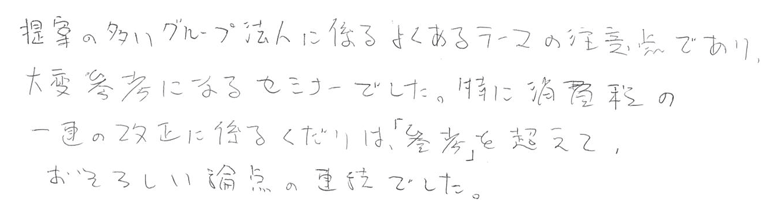 提案の多いグループ法人に係るよくあるテーマの注意点であり、
大変参考になるセミナーでした。特に消費税の
一連の改正に係るくだりは、「参考」を超えて、
おそろしい論点の連続でした。